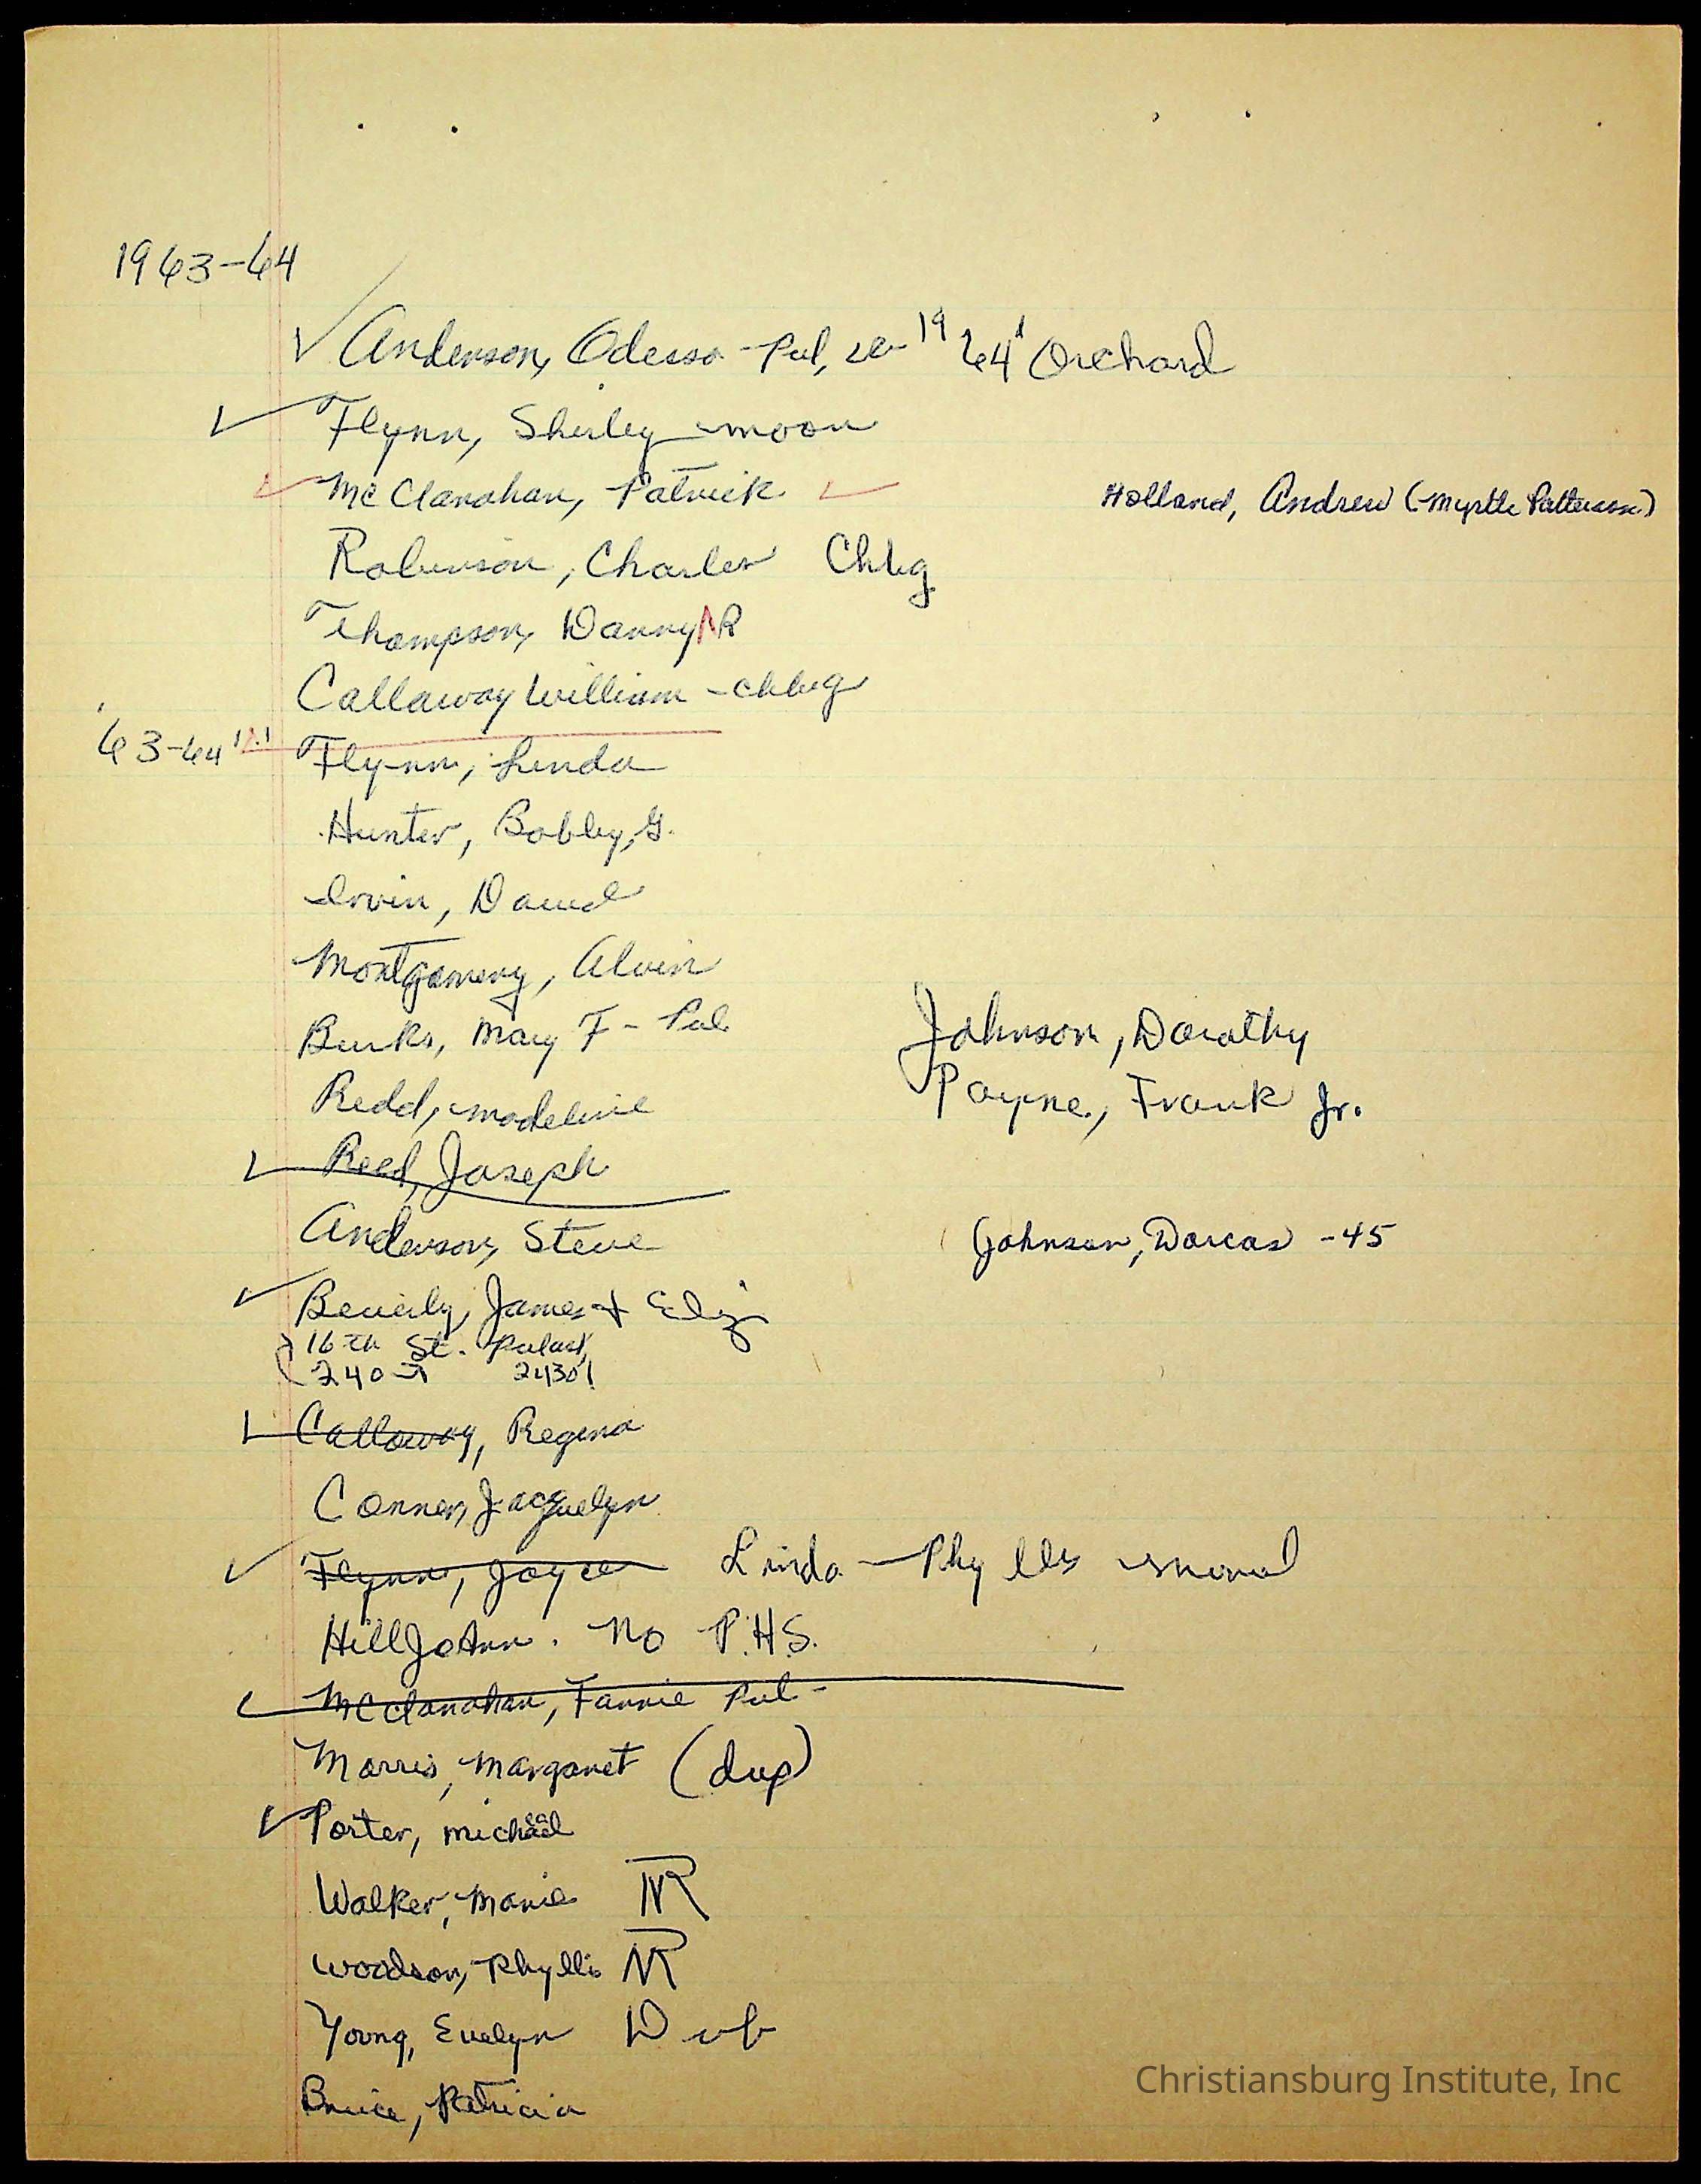 1963-64
Anderson, Odessa - Pul, 19 64 Orchard
Flynn, Shirley moon
McClanahan, Patrick
Holland, Andrew (Myrtle Patterson)
Robinson, Charles Chbg
Thompson, Danny R
Callaway William - chbg
63-64 Flynn, Linda
Hunter, Bobby, G.
Irvin, David
Montgomery, Alvin
Burks, Mary F - Pul
Johnson, Dorothy
Redd, Madeline
Payne, Frank Jr.
Reed, Joseph
Anderson, Steve
Johnson, Dorcas - 45
Beverly, James + Eliz
16th St. Pulaski
240 24301
Calloway, Regina
Conner, Jacquelyn
Flynn, Joyce Linda - Phyllis
Hill JoAnn. No P.H.S.
McClanahan, Fannie Pul -
Morris, Margaret (dup)
Porter, Michael
Walker, Marie NR
Woodson, Phyllis NR
Young, Evelyn
Bruce, Patricia
Christiansburg Institute, Inc